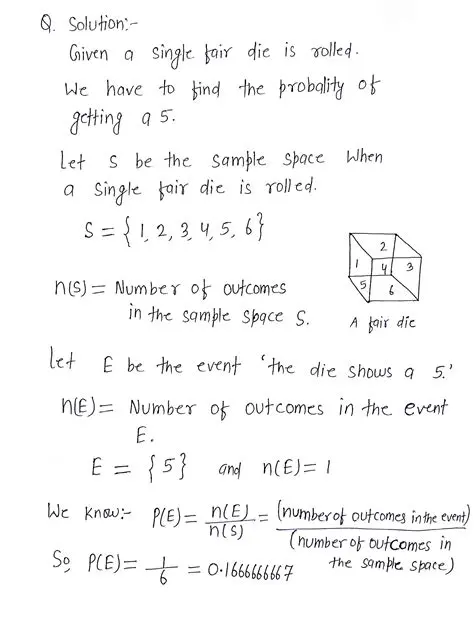 Q. Solution:-
Given a single fair die is rolled.
We have to find the probality of
getting a 5.
Let S be the sample space when
a single fair die is rolled.
S = {1, 2, 3, 4, 5, 6}
2
1 4 3
5 6
n(S) = Number of outcomes
in the sample space S.
A fair die
Let E be the event 'the die shows a 5.'
n(E) = Number of outcomes in the event
E.
E = {5} and n(E) = 1
We know:- P(E) = n(E)/n(S) = (number of outcomes in the event)/(number of outcomes in the sample space)
So, P(E) = 1/6 = 0.1666666667